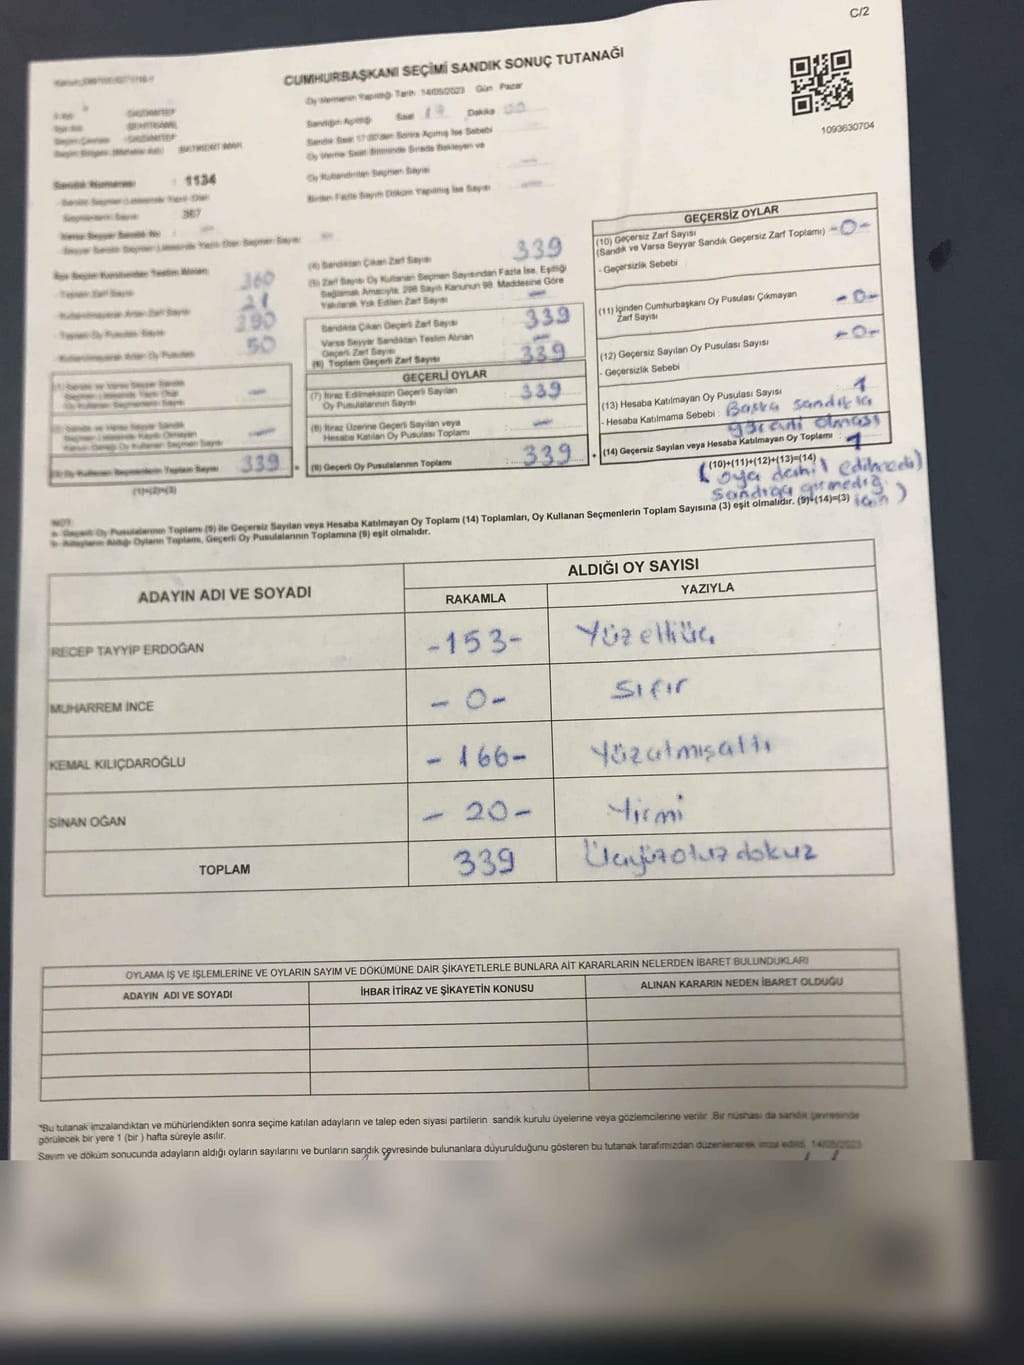 C/2
CUMHURBAŞKANI SEÇİMİ SANDIK SONUÇ TUTANAĞI
Oy Vermenin Yapıldığı Tarih 14/05/2023 Gün Pazar
Sandığın Açıldığı Saat 17 Dakika 00
Sandık Saat 17:00'den Sonra Açılmış İse Sebebi
Oy Verme Saati Bitiminde Sırada Bekleyen ve
Oy Kullandırılan Seçmen Sayısı
Birden Fazla Sayım Döküm Yapılmış İse Sayısı
1093630704
GAZİANTEP
ŞEHİTKAMİL
GAZİANTEP
Sandık Numarası : 1134
367
360
21
390
50
(3) Oy Kullanan Seçmenlerin Toplam Sayısı 339
(1)+(2)=(3)
(4) Sandıktan Çıkan Zarf Sayısı 339
(5) Zarf Sayısı Oy Kullanan Seçmen Sayısından Fazla İse, Eşitliği
Sağlamak Amacıyla, 298 Sayılı Kanunun 98. Maddesine Göre
Yakılarak Yok Edilen Zarf Sayısı -
Sandıkta Çıkan Geçerli Zarf Sayısı 339
Varsa Seyyar Sandıktan Teslim Alınan
Geçerli Zarf Sayısı -
(6) Toplam Geçerli Zarf Sayısı 339
GEÇERLİ OYLAR
(7) İtiraz Edilmeksizin Geçerli Sayılan
Oy Pusulalarının Sayısı 339
(8) İtiraz Üzerine Geçerli Sayılan veya
Hesaba Katılan Oy Pusulası Toplamı -
(9) Geçerli Oy Pusulalarının Toplamı : 339
+
GEÇERSİZ OYLAR
(10) Geçersiz Zarf Sayısı
(Sandık ve Varsa Seyyar Sandık Geçersiz Zarf Toplamı) -0-
- Geçersizlik Sebebi
(11) İçinden Cumhurbaşkanı Oy Pusulası Çıkmayan
Zarf Sayısı -0-
(12) Geçersiz Sayılan Oy Pusulası Sayısı -0-
- Geçersizlik Sebebi
(13) Hesaba Katılmayan Oy Pusulası Sayısı 1
- Hesaba Katılmama Sebebi : Başka sandıkta
olması
(14) Geçersiz Sayılan veya Hesaba Katılmayan Oy Toplamı : 1
(10)+(11)+(12)+(13)=(14)
(oya dahil edilmedi
sandığa girmediği
için)
NOT:
a- Geçerli Oy Pusulalarının Toplamı (9) ile Geçersiz Sayılan veya Hesaba Katılmayan Oy Toplamı (14) Toplamları, Oy Kullanan Seçmenlerin Toplam Sayısına (3) eşit olmalıdır. (9)+(14)=(3)
b- Adayların Aldığı Oyların Toplamı, Geçerli Oy Pusulalarının Toplamına (9) eşit olmalıdır.
ADAYIN ADI VE SOYADI ALDIĞI OY SAYISI
RAKAMLA YAZIYLA
RECEP TAYYIP ERDOĞAN -153- Yüzelliüç
MUHARREM İNCE -0- sıfır
KEMAL KILIÇDAROĞLU -166- Yüzatmışaltı
SİNAN OĞAN -20- Yirmi
TOPLAM 339 Üçyüzotuzdokuz
OYLAMA İŞ VE İŞLEMLERİNE VE OYLARIN SAYIM VE DÖKÜMÜNE DAİR ŞİKAYETLERLE BUNLARA AİT KARARLARIN NELERDEN İBARET BULUNDUKLARI
ADAYIN ADI VE SOYADI İHBAR İTİRAZ VE ŞİKAYETİN KONUSU ALINAN KARARIN NEDEN İBARET OLDUĞU
"Bu tutanak imzalandıktan ve mühürlendikten sonra seçime katılan adayların ve talep eden siyasi partilerin sandık kurulu üyelerine veya gözlemcilerine verilir .Bir nüshası da sandık çevresinde
görülecek bir yere 1 (bir ) hafta süreyle asılır.
Sayım ve döküm sonucunda adayların aldığı oyların sayılarını ve bunların sandık çevresinde bulunanlara duyurulduğunu gösteren bu tutanak tarafımızdan düzenlenerek imza edildi. 14/05/2023